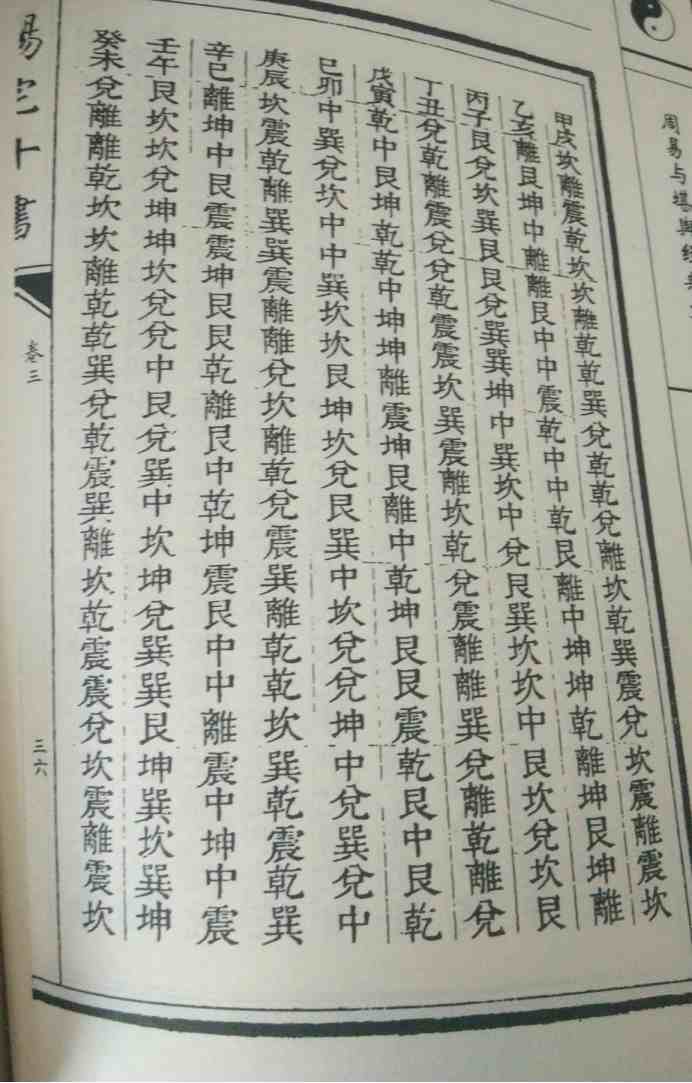 周易与堪舆经
甲戌坎離震乾坎坎離乾乾巽兌乾乾兌離坎乾巽震兌坎震離震坎
乙亥離艮坤中離離艮中中震乾中中乾艮離中坤坤乾離坤艮坤離
丙子艮兌坎巽艮艮兌巽巽坤中巽坎中兌艮巽坎坎中艮坎兌坎艮
丁丑兌乾離震兌兌乾震震坎巽震離坎乾兌震離離巽兌離乾離兌
戊寅乾中艮坤乾乾中坤坤離震坤艮離中乾坤艮艮震乾艮中艮乾
己卯中巽兌坎中中巽坎坎艮坤坎兌艮巽中坎兌兌坤中兌巽兌中
庚辰坎震乾離巽巽震離離兌坎離乾兌震巽離乾乾坎巽乾震乾巽
辛巳離坤中艮震震坤艮艮乾離艮中乾坤震艮中中離震中坤中震
壬午艮坎坎兌坤坤坎兌兌中艮兌巽中坎坤兌巽巽艮坤巽坎巽坤
癸未兌離離乾坎坎離乾乾巽兌乾震巽離坎乾震震兌坎震離震坎
陽宅十書
卷三
三六